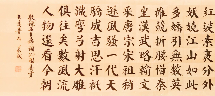 紅裝素裹分外
妖嬈江山如此
多嬌引無數英
雄競折腰惜秦
皇漢武略輸文
采唐宗宋祖稍
遜風騷一代天
驕成吉思汗祇
識彎弓射大雕
俱往矣數風流
人物還看今朝